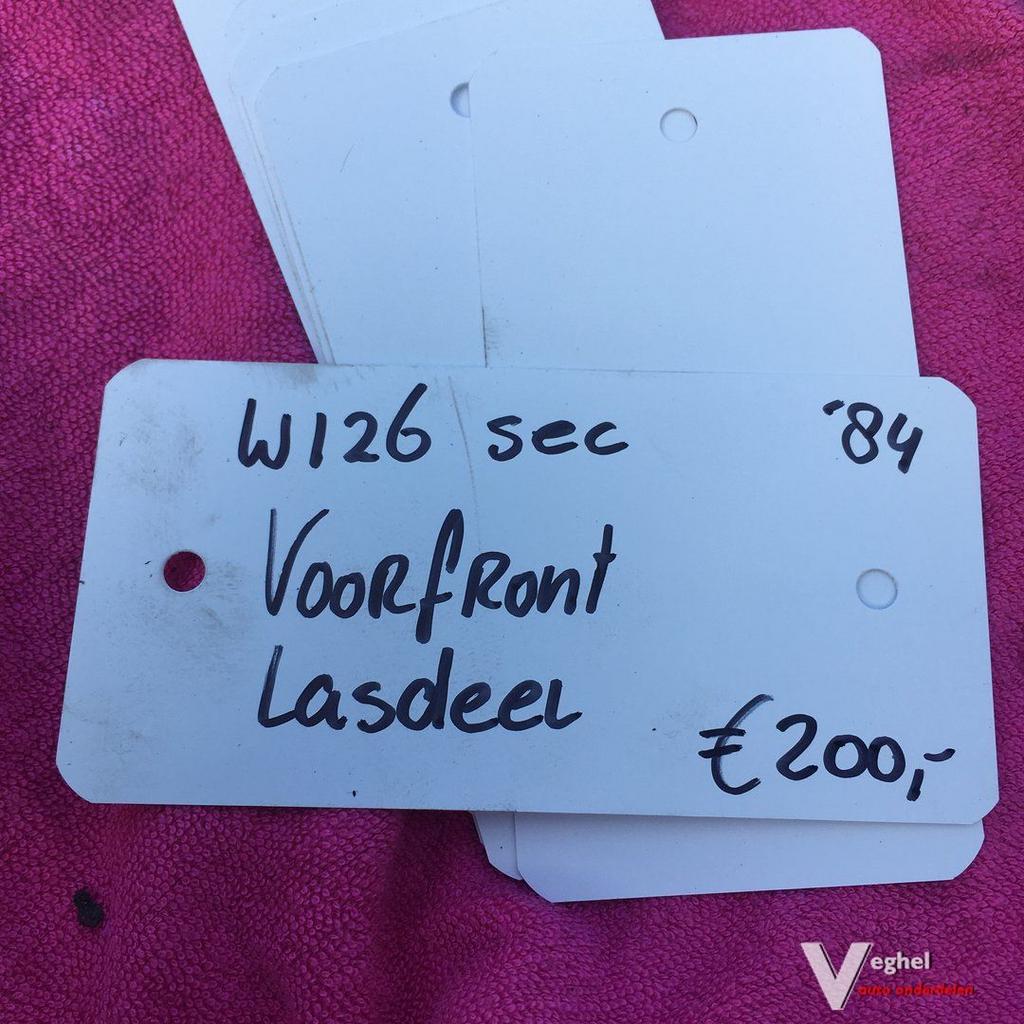 W126 sec '84
Voorfront
Lasdeel
€200,-
Veghel
auto onderdelen